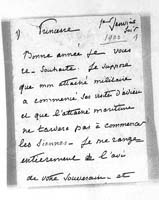 Princesse
1er Janvier
1902
Bonne année je vous
re-souhaite. Je suppose
que mon attaché militaire
a commencé ses visites d'adieu
et que l'attaché maritime
ne tardera pas à commencer
les siennes. Je me range
entièrement à l'avis
de votre souverain - et